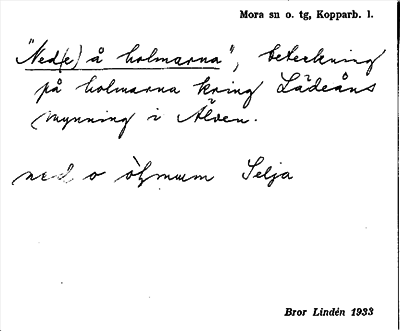 Mora sn o. tg, Kopparb. l.
"Ned(e) å holmarna", beteckning
på holmarna kring Lädeåns
mynning i Älven.
ned o Selja
Bror Lindén 1933